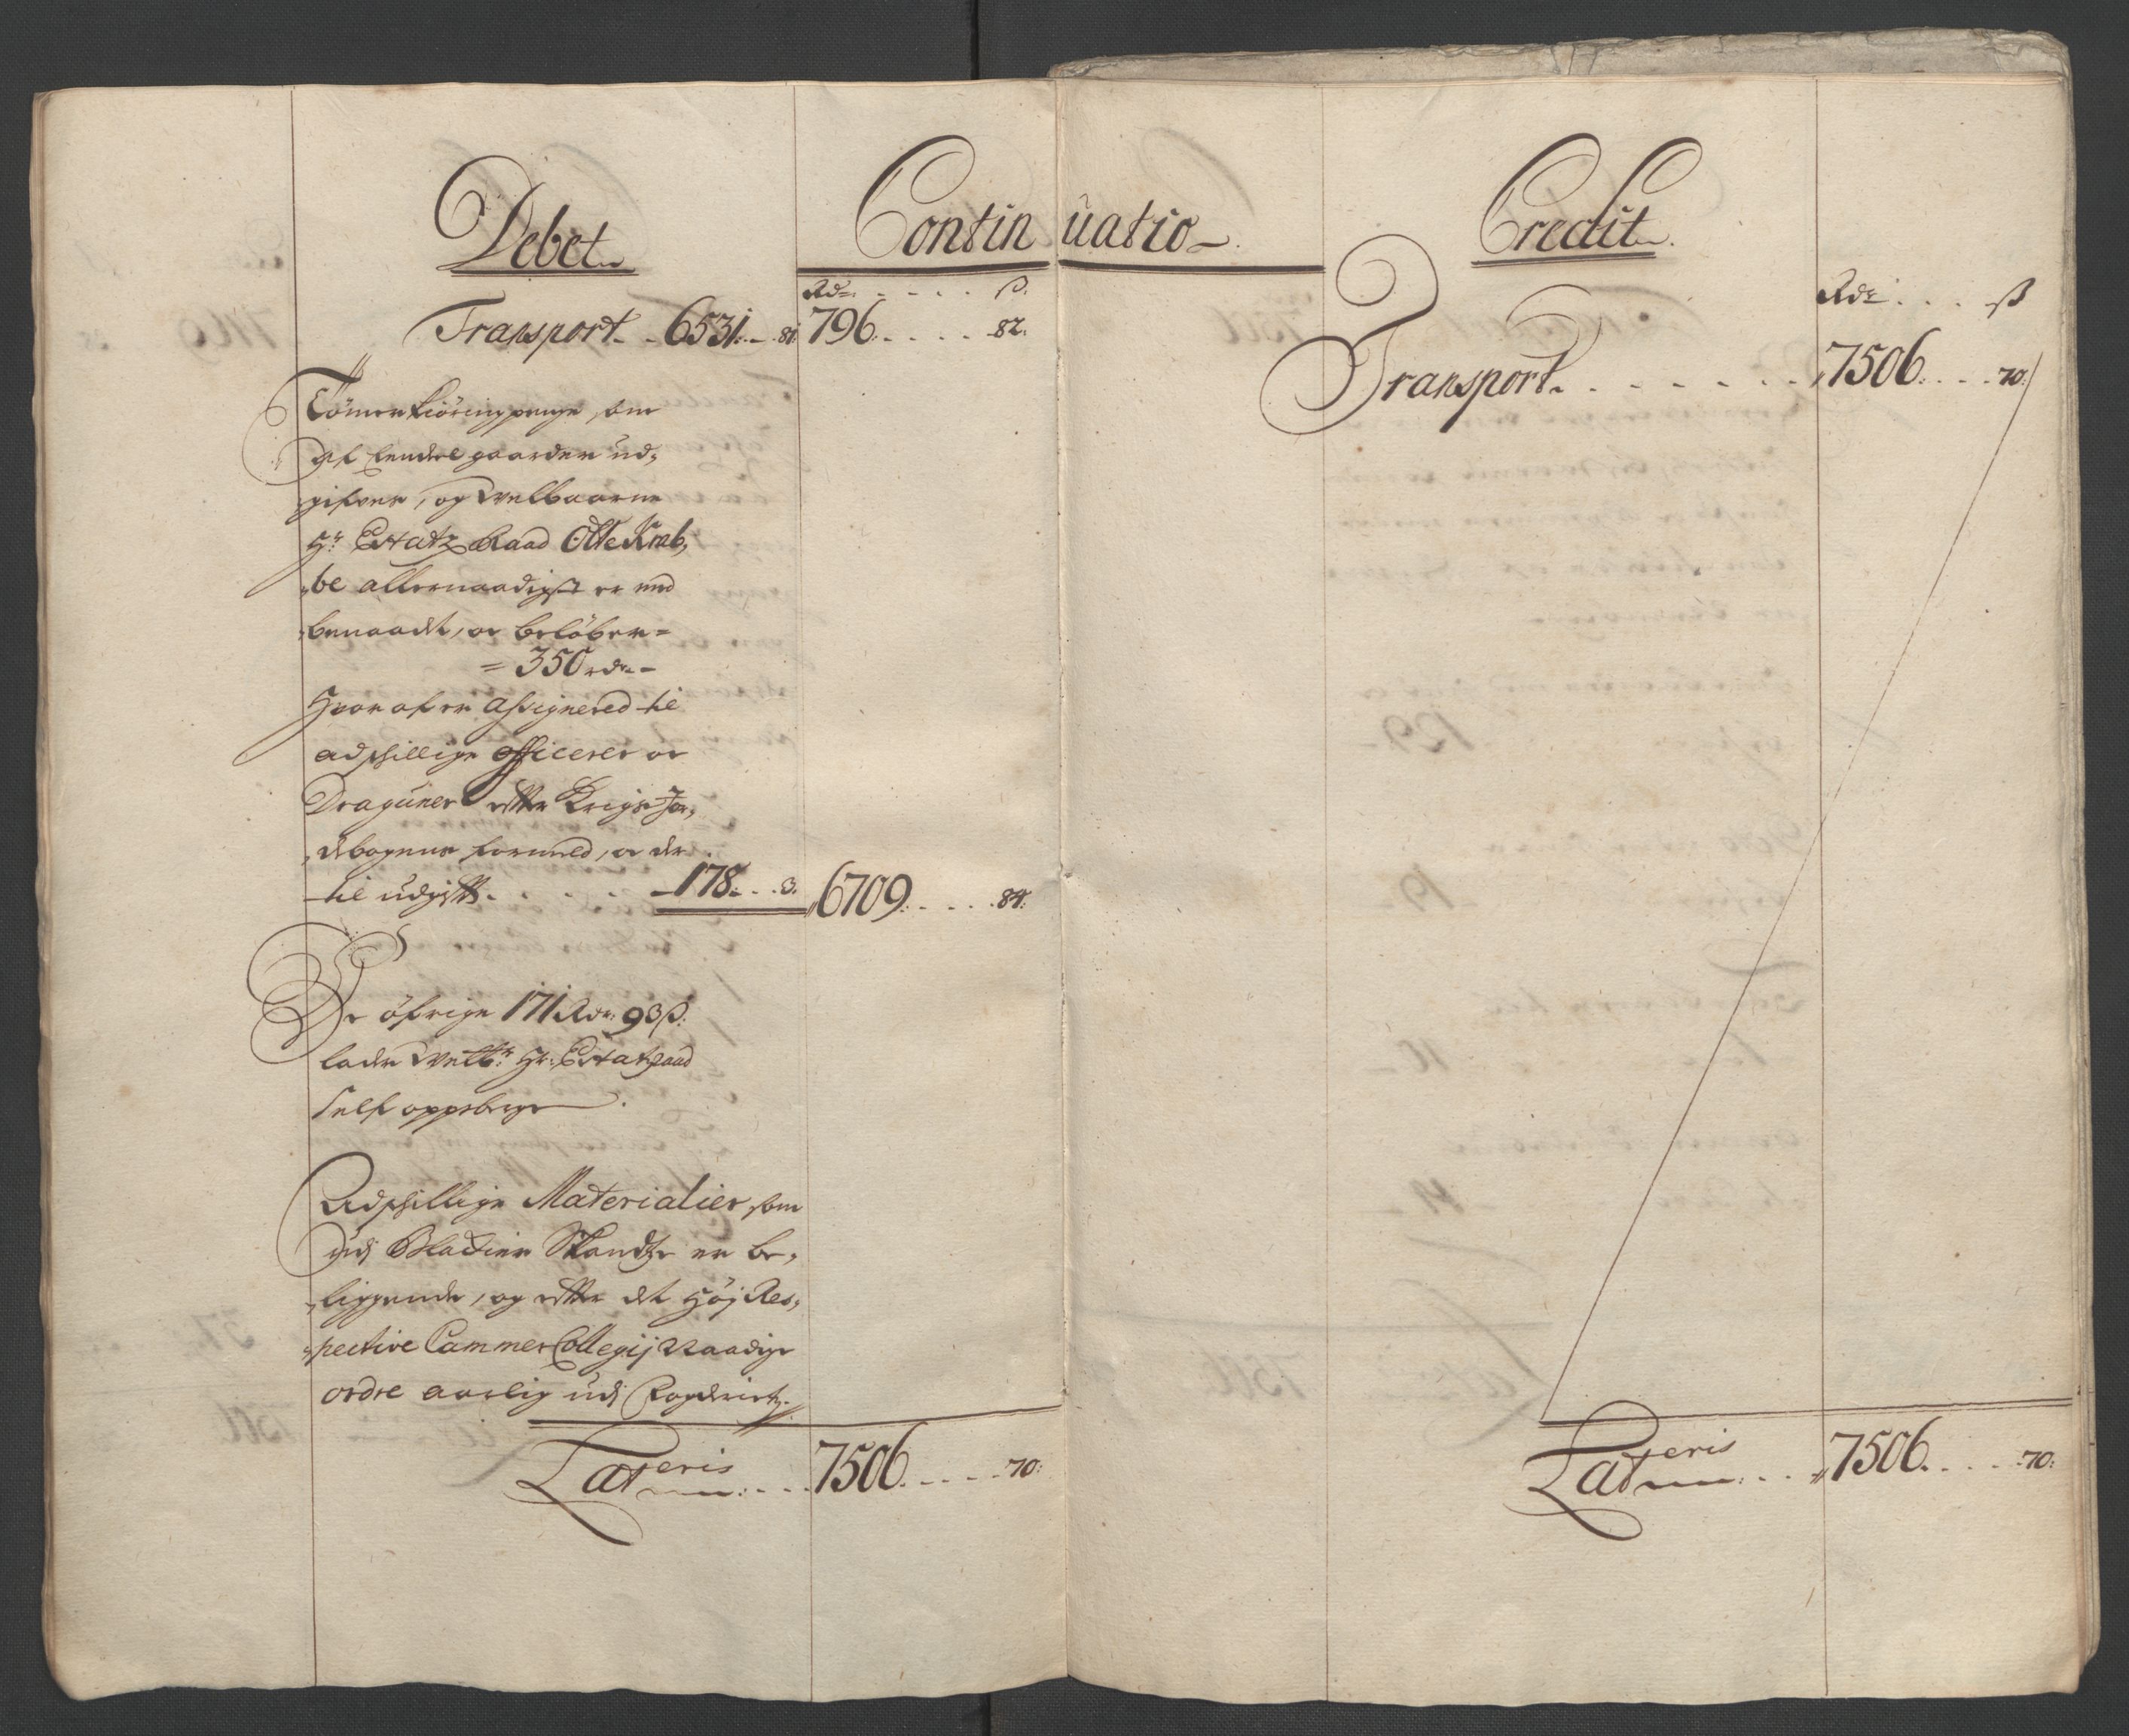 Debet
Continuatio
Rdr. . . . . ß.
Transport. . 6531. . 81. 796. . . . . 82.
Tömer Kiöring penge, som
af Eendeel gaarder ud,
gifves, og Welbaarne
Hr. Estatz Raad Otte Krab,
be allernaadigst er med
benaadt, og beløber =
= 350 rdr. -
Hvor af er Assignered til
adskillige Officerer og
Draguner efter Krigs Jor,
debogens formeld, og der
til udgift. . . . . 178. . . 3. 6709. . . . . 84.
De øfrige 171 Rdr. 93 ß.
lader Welb. Hr. Estatzraad
self oppeberge
Adskillige Materialier, som
udi Blackier Skandtze er be,
liggende, og efter det Høj Res,
pective Cammer Collegij Naadige
ordre aarlig udj
Lateris . . . 7506. . . . . 70.
Credit
Rdr. . . . ß
Transport. . . . . . . 7506. . . . 70.
Lateris . . . 7506. . . . . 70.